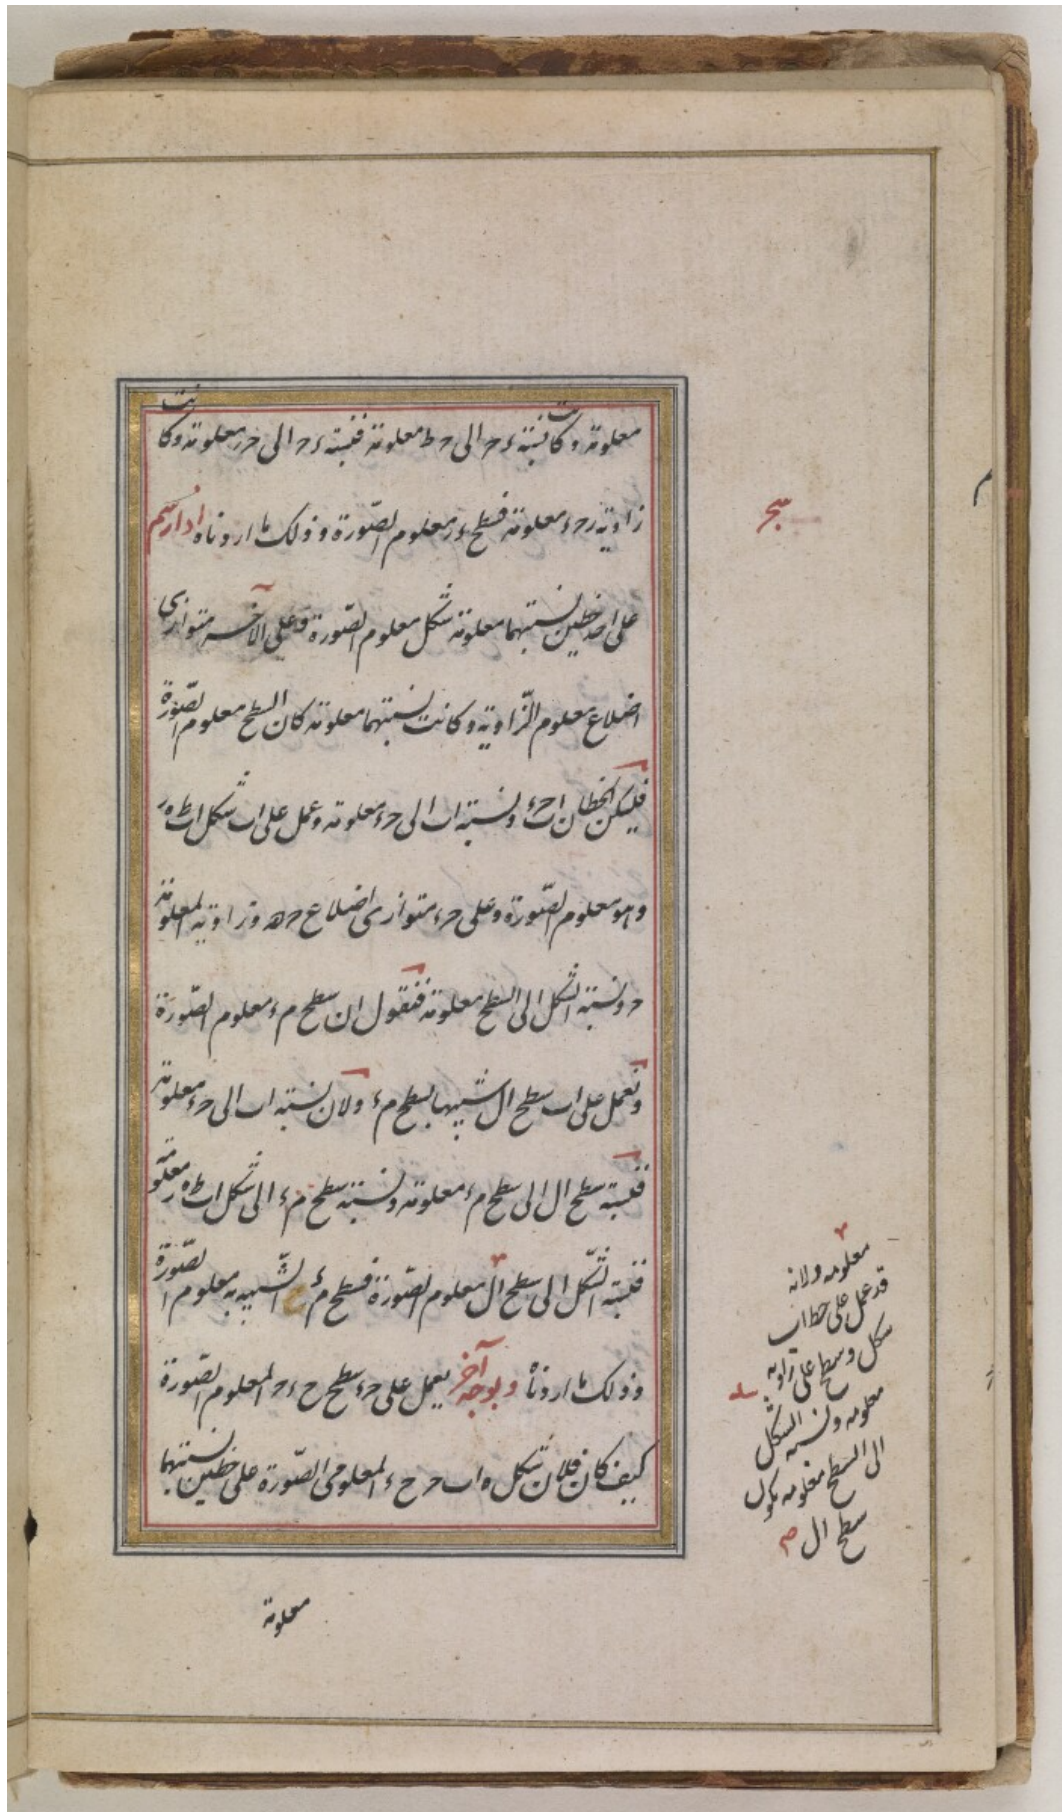 معلومة وكانت نسبة ء ح الى ح ط معلومة فنسبة ء ح الى ح ر معلومة وكانت
زاوية ر ح ء معلومة فسطح ء ر معلوم الصّورة وذلك ما اردناه اذا رسم
على احد خطين نسبتهما معلومة شكل معلوم الصّورة وعلى الآخر متوازى
اضلاع معلوم الزّاوية وكانت نسبتهما معلومة كان السطح معلوم الصّورة
فليكن الخطان اب ح ء ونسبة اب الى ح ء معلومة وعمل على اب شكل اب ط ه ر
وهو معلوم الصّورة وعلى ح ء متوازى اضلاع ح ه وزاويته المعلومة
ح ونسبة الشكل الى السطح معلومة فنقول ان سطح م ء معلوم الصّورة
ونعمل على اب سطح ال شبيها بسطح م ء ولان نسبة اب الى ح ء معلومة
فنسبة سطح ال الى سطح م ء معلومة ونسبة سطح م ء الى شكل اب ط ه ر معلومة
فنسبة الشّكل الى سطح ال معلوم الصّورة فسطح م ء الشّبيه به معلوم الصّورة
وذلك ما اردناه وبوجه آخر يعمل على ح ء سطح ح ء ح المعلوم الصّورة
كيف كان فلان شكل ه اب ح ح ء المعلومى الصّورة على خطين نسبتهما
معلومة
سح
معلومه ولانه
قد عمل على خط اب
شكل وسطح على زاويه
معلومه ونسبه الشكل
الى السطح معلومه يكون
سطح ال صح